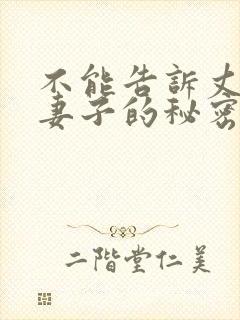 不能告訴丈
妻子的秘密
二階堂仁美